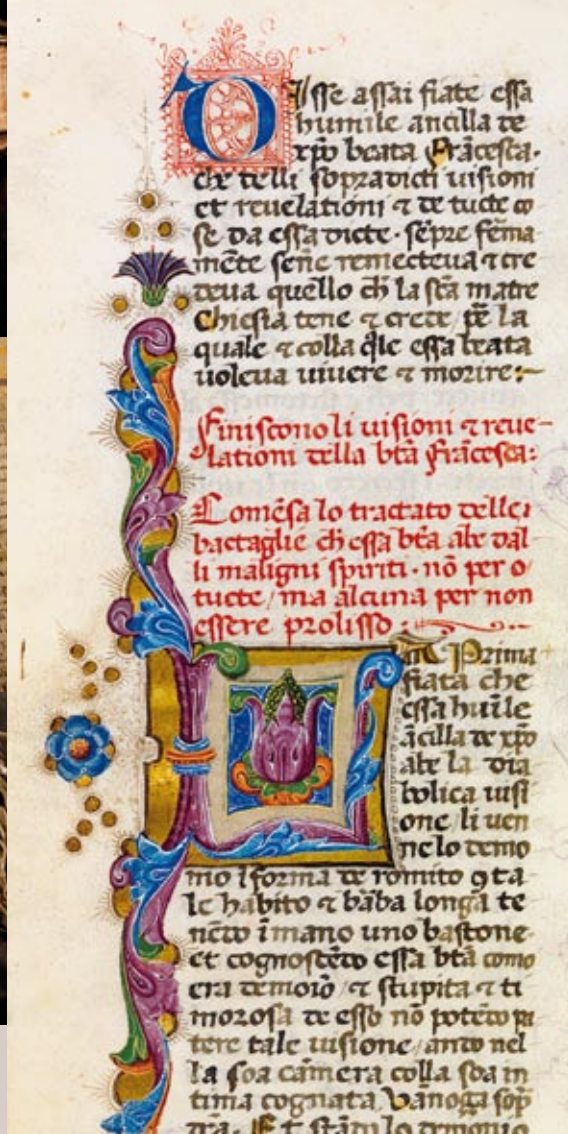 Disse assai fiate essa
humile ancilla de
xp̄o beata Frācesca.
che delli sopradicti uisioni
et reuelationi ⁊ de tucte co
se da essa dicte. sēpre ferma
mēte sene remecteua ⁊ cre
deua quello ch̄ la scā matre
Chiesia tene ⁊ crede, pe la
quale ⁊ colla q̄le essa beata
uoleua uiuere ⁊ morire:~
Finiscono li uisioni ⁊ reue-
lationi della btā Frācesca:
Comēsa lo tractato delle
bactaglie ch̄ essa bēa abe dal
li maligni spiriti. nō per o
tucte, ma alcuna per non
essere prolisso:
La Prima
fiata che
essa huīle
ācilla de xp̄o
abe la dia
bolica uisi
one, li uen
ne lo demo
nio ī forma de romito ꝯ ta
le habito ⁊ bāba longa te
nēdo ī mano uno bastone
et cognoscēdo essa btā como
era demoīo, ⁊ stupita ⁊ ti
morosa de esso nō potēdo pa
tere tale uisione, ando nel
la soa camera colla soa in
tima cognata Vanoza sop̄
dcā. Et stādo lo demonio